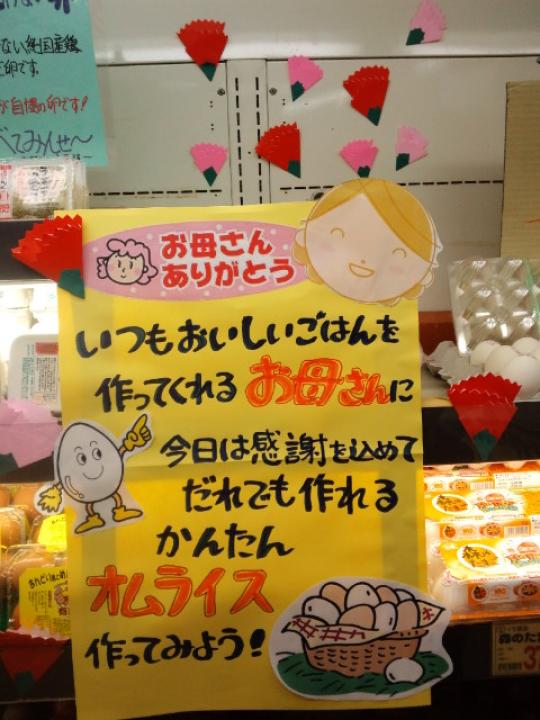 ない純国産鶏
卵です。
が自慢の卵です!
べてみんせ〜
お母さん
ありがとう
いつもおいしいごはんを
作ってくれるお母さんに
今日は感謝を込めて
だれでも作れる
かんたん
オムライス
作ってみよう!
森のた